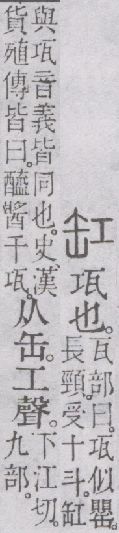 缸 瓨也。瓦部曰。瓨似罌。長頸。受十斗。缸
與瓨音義皆同也。史漢貨殖傳皆曰。醯醬千瓨。从缶。工聲。下江切。九部。